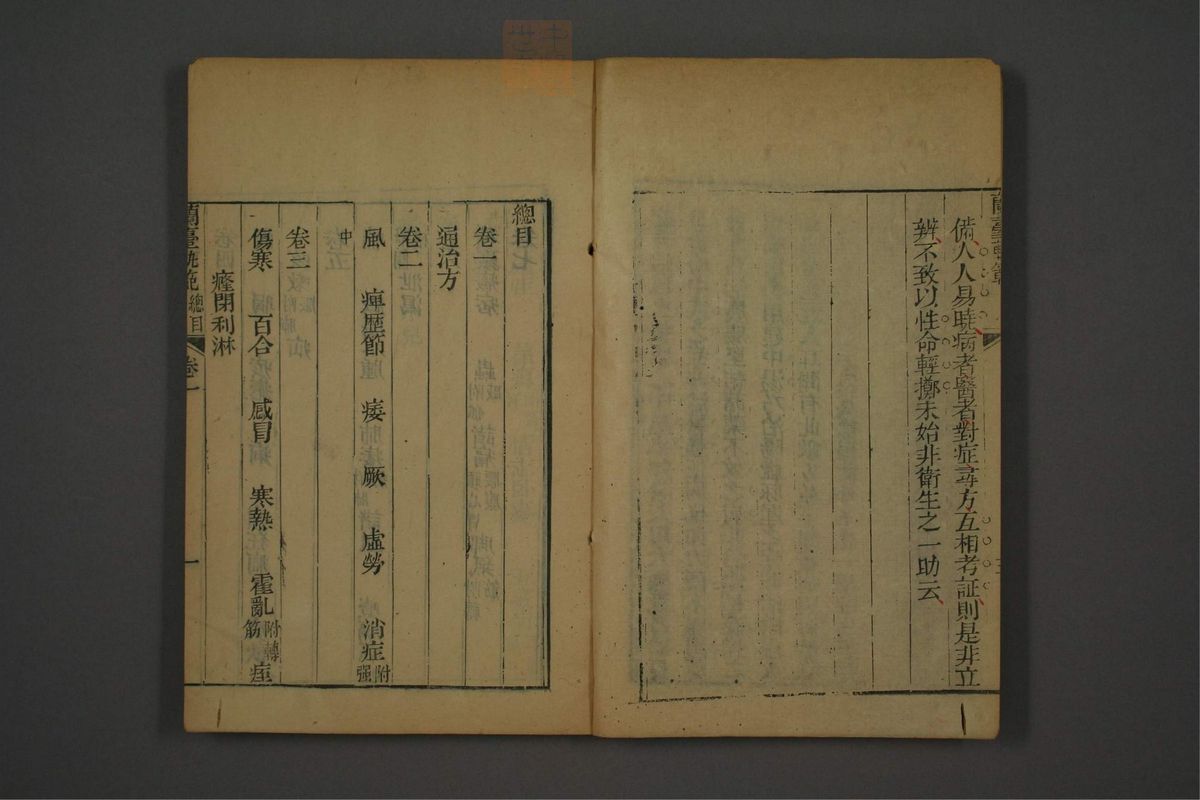 備人人易曉病者醫者對症尋方互相考証則是非立
辨不致以性命輕擲未始非衛生之一助云
總目
卷一
通治方
卷二
中
風 痺歷節 痿 厥 虛勞 消症附强
卷三
傷寒 百合 感冒 寒熱 霍亂附轉筋 痙
癃閉利淋
蘭臺軌範 總目 卷一 一